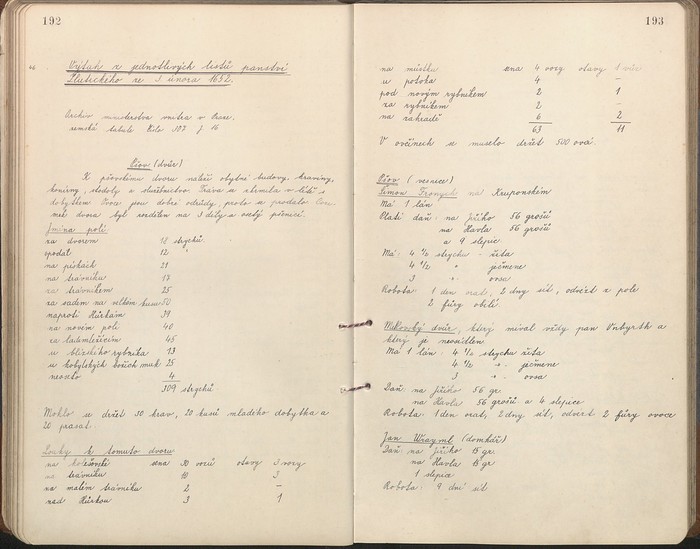 192
Výtah z jednotlivých listů panství
Žlutického ze 3 února 1652.
Archiv ministerstva vnitra v Praze.
zemská tabule Kilo 107 f 16
Pšov (dvůr)
K pšovskému dvoru náleží obytné budovy, kravíny,
konírny, stodoly a služebnictvo. Tráva se zkrmila v létě s
dobytkem Ovoce jsou dobré odrůdy, proto se prodalo
dvora byl rozdělen na 3 díly a osetý pšenicí.
Jména polí
za dvorem 18 strychů
opodál 12 "
na pískách 21
na trávníku 13
za trávníkem 25
za sadem na velkém kusu 50
naproti Hůrkám 39
na novém poli 40
45
u blízkého rybníka 13
u kobylských božích muk 25
neoseto 4
309 strychů
Mohlo se držet 30 krav, 20 kusů mladého dobytka a
20 prasat.
Louky k tomuto dvoru
sena 30 vozů otavy 3 vozy
na trávníku 10 3
na malém trávníku 2 –
nad Hůrkou 3 1
193
na můstku sena 4 vozy otavy 1 vůz
u potoka 4 –
pod novým rybníkem 2 1
za rybníkem 2 –
na zahradě 6 2
63 11
V ovčínech se muselo držet 500 ovcí.
Pšov (vesnice)
Šimon na Kruponském
Má 1 lán
Platí daň: na Jiřího 56 grošů
na Havla 56 grošů
a 9 slepice.
Má: 4 1/2 strychu žita
4 1/2 " ječmene
3 " ovsa
Robota: 1 den orat, 2 dny sít, odvézt z pole
2 fůry obilí
dvůr, který míval vždy pan a
který je neosídlen
Má 1 lán: 4 1/2 strychu žita
4 1/2 " ječmene
3 " ovsa
Daň: na Jiřího 56 gr.
na Havla 56 grošů a 4 slepice
Robota: 1 den orat, 2 dny sít, odvézt 2 fůry ovoce
Jan (domkář)
Daň: na Jiřího 15 gr.
na Havla 15 gr.
1 slepice
Robota: 9 dní sít